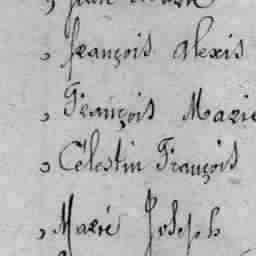 , françois alexis
, François Marie
, Célestin François
, Marie Joseph